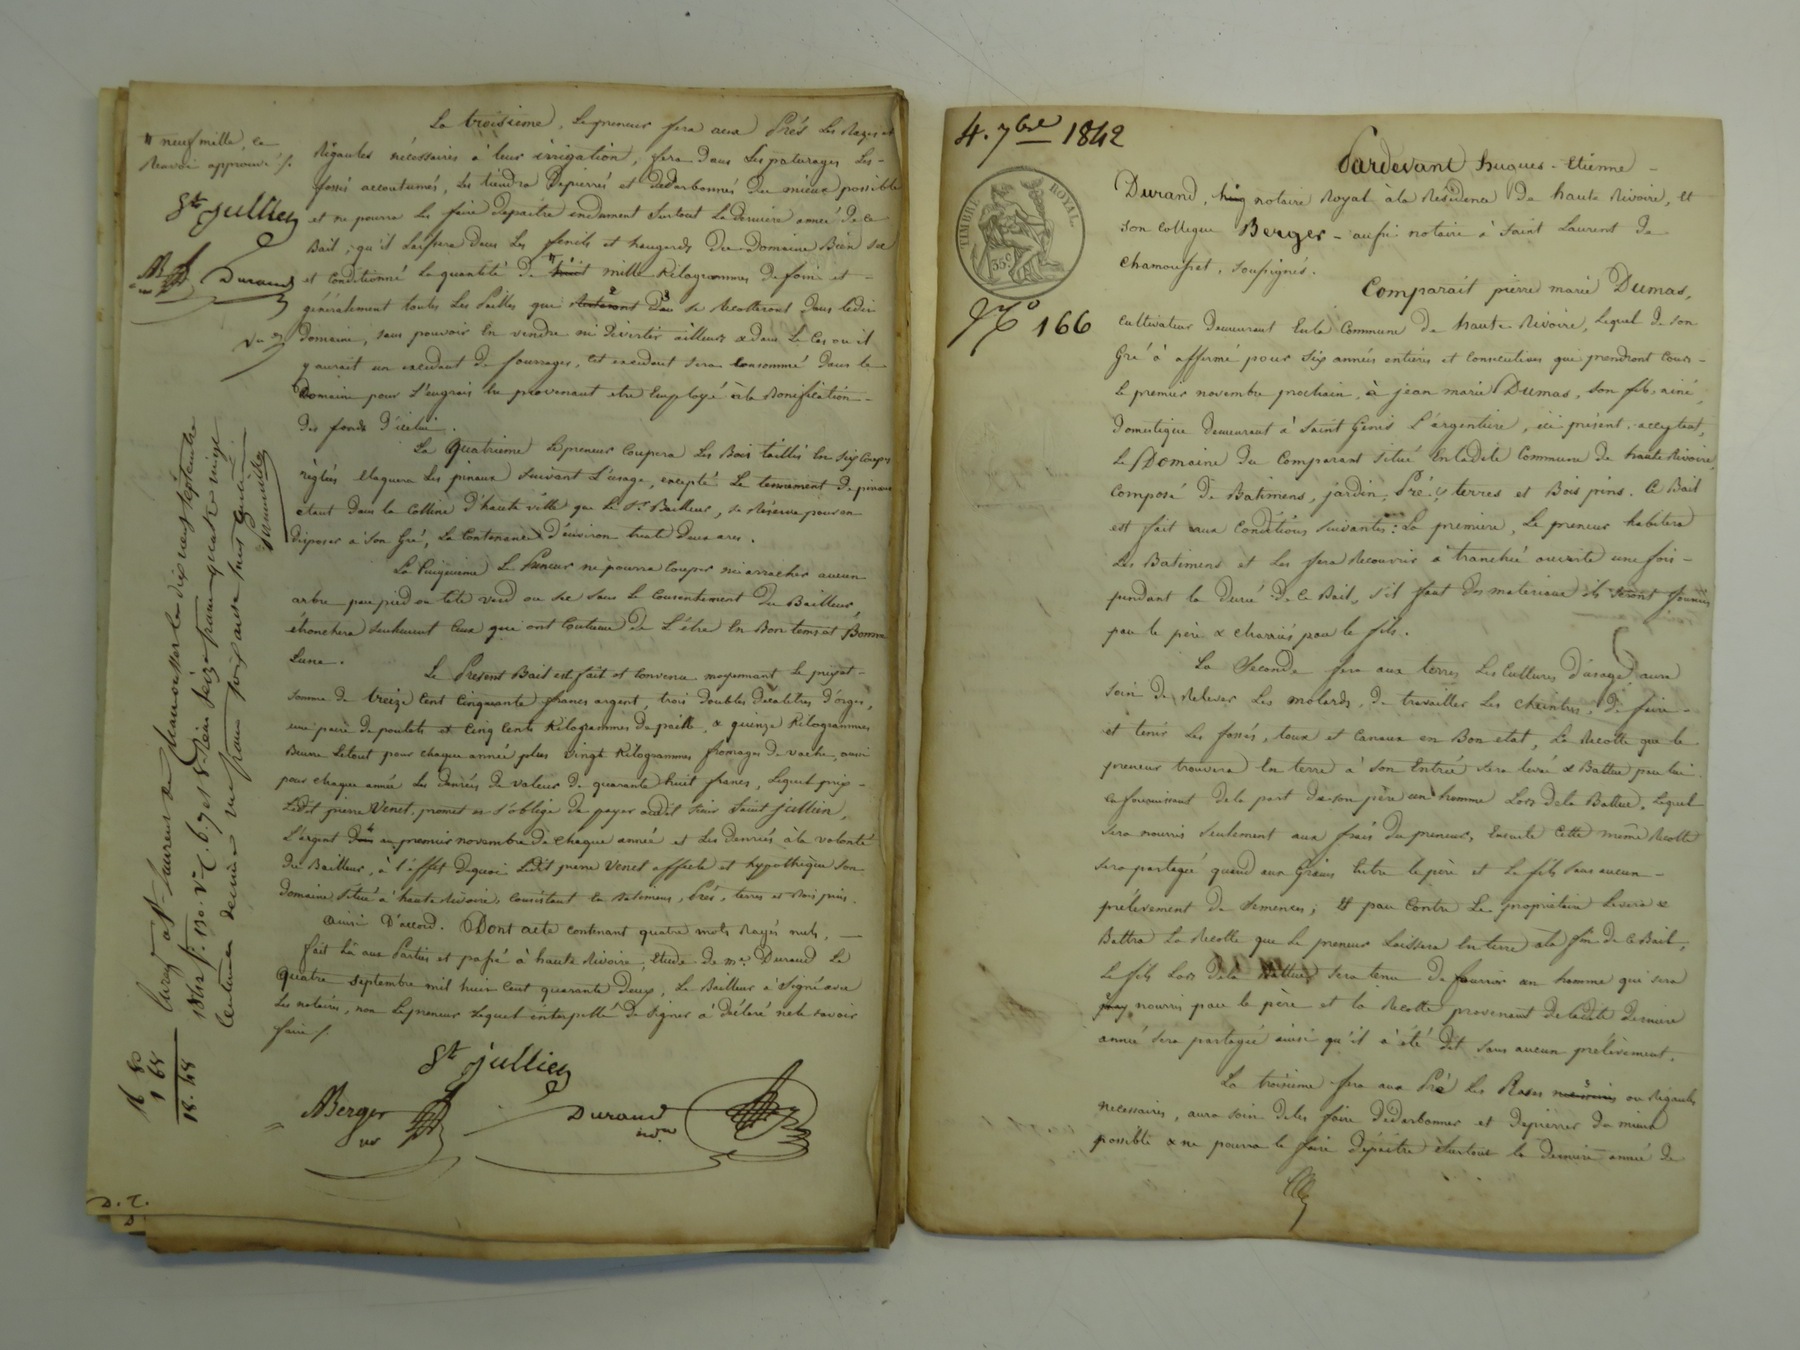 La troisieme, Le preneur fera aux Prés Les Razes et
Rigaules nécessaires à leur irrigation, fera dans Les paturages Les
fossés accoutumés, Les tiendra Depierrés et Dedarbonnés du mieux possible
et ne pourra Les faire Depaitre induement surtout La derniere année de ce
Bail; qu'il Laissera dans Les fenils et hangards du Domaine Bien sec
et Conditionné La quantité de huit mille Kilogrammes de foin et
généralement toutes Les Pailles qui se Recolteront dans Ledit
Domaine, sans pouvoir En vendre ni Divertir ailleurs & dans Le Cas ou il
y aurait un excedant de fourrages, Cet excedant sera consommé dans le
Domaine pour L'engrais En provenant etre Employé à la Bonification
des fonds d'icelui.
La Quatrieme Le preneur Coupera Les Bois taillis En six Coupes
réglées Elaguera Les pinaux suivant L'usage, excepté Le tenement de pinaux
etant dans la Colline d'haute ville que Le Sr. Bailleur, se Réserve pour en
disposer à son Gré, La Contenance d'environ trente Deux ares.
La Cinquieme Le Preneur ne pourra Couper ni arracher aucun
arbre par pied ou tête verd ou sec sans Le Consentement du Bailleur,
étronchera seulement Ceux qui ont Coutume de L'être En Bon tems et Bonne
Lune.
Le Présent Bail est fait et Convenu moyennant le prix et
somme de treize Cent Cinquante francs argent, trois doubles Décalitres d'orges,
une paire de poulets et Cinq Cents Kilogrammes de paille, & quinze Kilogrammes
Beurre Le tout pour chaque année plus Vingt Kilogrammes fromages de vache, aussi
pour chaque année Les Denrées de valeur de quarante huit francs, Lequel prix
Ledit pierre Venet, promet et s'oblige de payer audit sieur Saint jullien,
L'argent au premier novembre de Chaque année et Les Denrées à la volonté
du Bailleur, à l'effet de quoi Ledit pierre Venet affecte et hypothèque son
Domaine situé à haute Rivoire, Consistant En Batimens, Prés, terres et Bois pins.
ainsi D'accord. Dont acte contenant quatre mots Rayés nuls,
fait Lu aux Parties et passé à haute Rivoire, Etude de me. Durand Le
quatre septembre mil huit Cent quarante deux, Le Bailleur à signé avec
Les notaires, non Le preneur Lequel interpellé de signer à déclaré ne le savoir
faire /.
St jullien
Berger
nre
Durand
nore
# neuf mille, ce
Renvoi approuvé /.
St jullien
Berger
Durand
Enregé à St. Laurent de Chamousset Le dix neuf septembre
1842 fo. 130. Vo. C. 6. 7 et 8.
16 80
1 68
18. 48
D. T.
4. 7bre 1842
TIMBRE ROYAL
35c
No 166
Pardevant hugues-Etienne
Durand, notaire Royal à la Résidence de haute Rivoire, et
son Collegue Berger aussi notaire à Saint Laurent de
Chamousset, soussignés.
Comparait pierre marie Dumas,
Cultivateur demeurant En la Commune de haute Rivoire, Lequel de son
Gré à affermé pour six années entieres et Consecutives qui prendront Cours
Le premier novembre prochain, à jean marie Dumas, son fils ainé,
domestique demeurant à Saint Genis L'argentiere, ici présent, acceptant,
Le Domaine du Comparant situé En ladite Commune de haute Rivoire,
Composé de Batimens, jardin, Pré, terres et Bois pins. Ce Bail
est fait aux Conditions suivantes: La premiere, Le preneur habitera
Les Batimens et Les fera Recouvrir à tranchée ouverte une fois
pendant la durée de Ce Bail, s'il faut des materiaux ils seront fournis
par le père & charriés par le fils.
La Seconde fera aux terres Les Cultures d'usage aura
soin de Relever Les molards, de travailler Les Cheintres, de faire
et tenir Les fossés, toux et Canaux en Bon etat, La Recolte que le
preneur trouvera En terre à son Entrée sera levée & Battue par lui
En fournissant de la part de son père un homme Lors de la Battue, Lequel
sera nourris seulement aux frais du preneur, Ensuite Cette même Recolte
sera partagée quand aux Grains Entre le père et Le fils sans aucun
prélèvement de semences; Et par Contre Le proprietaire Levera &
Battra La Recolte que Le preneur Laissera En terre à la fin de Ce Bail,
Le fils Lors de la Battue sera tenu de fournir un homme qui sera
nourri par le père et la Recolte provenant de Ladite derniere
année sera partagée ainsi qu'il à été dit sans aucun prélèvement.
La troisieme fera aux Pré Les Rases ou Rigaules
necessaires, aura soin de les faire Dedarbonner et Depierrer du mieux
possible & ne pourra le faire Dépaitre surtout la derniere année de